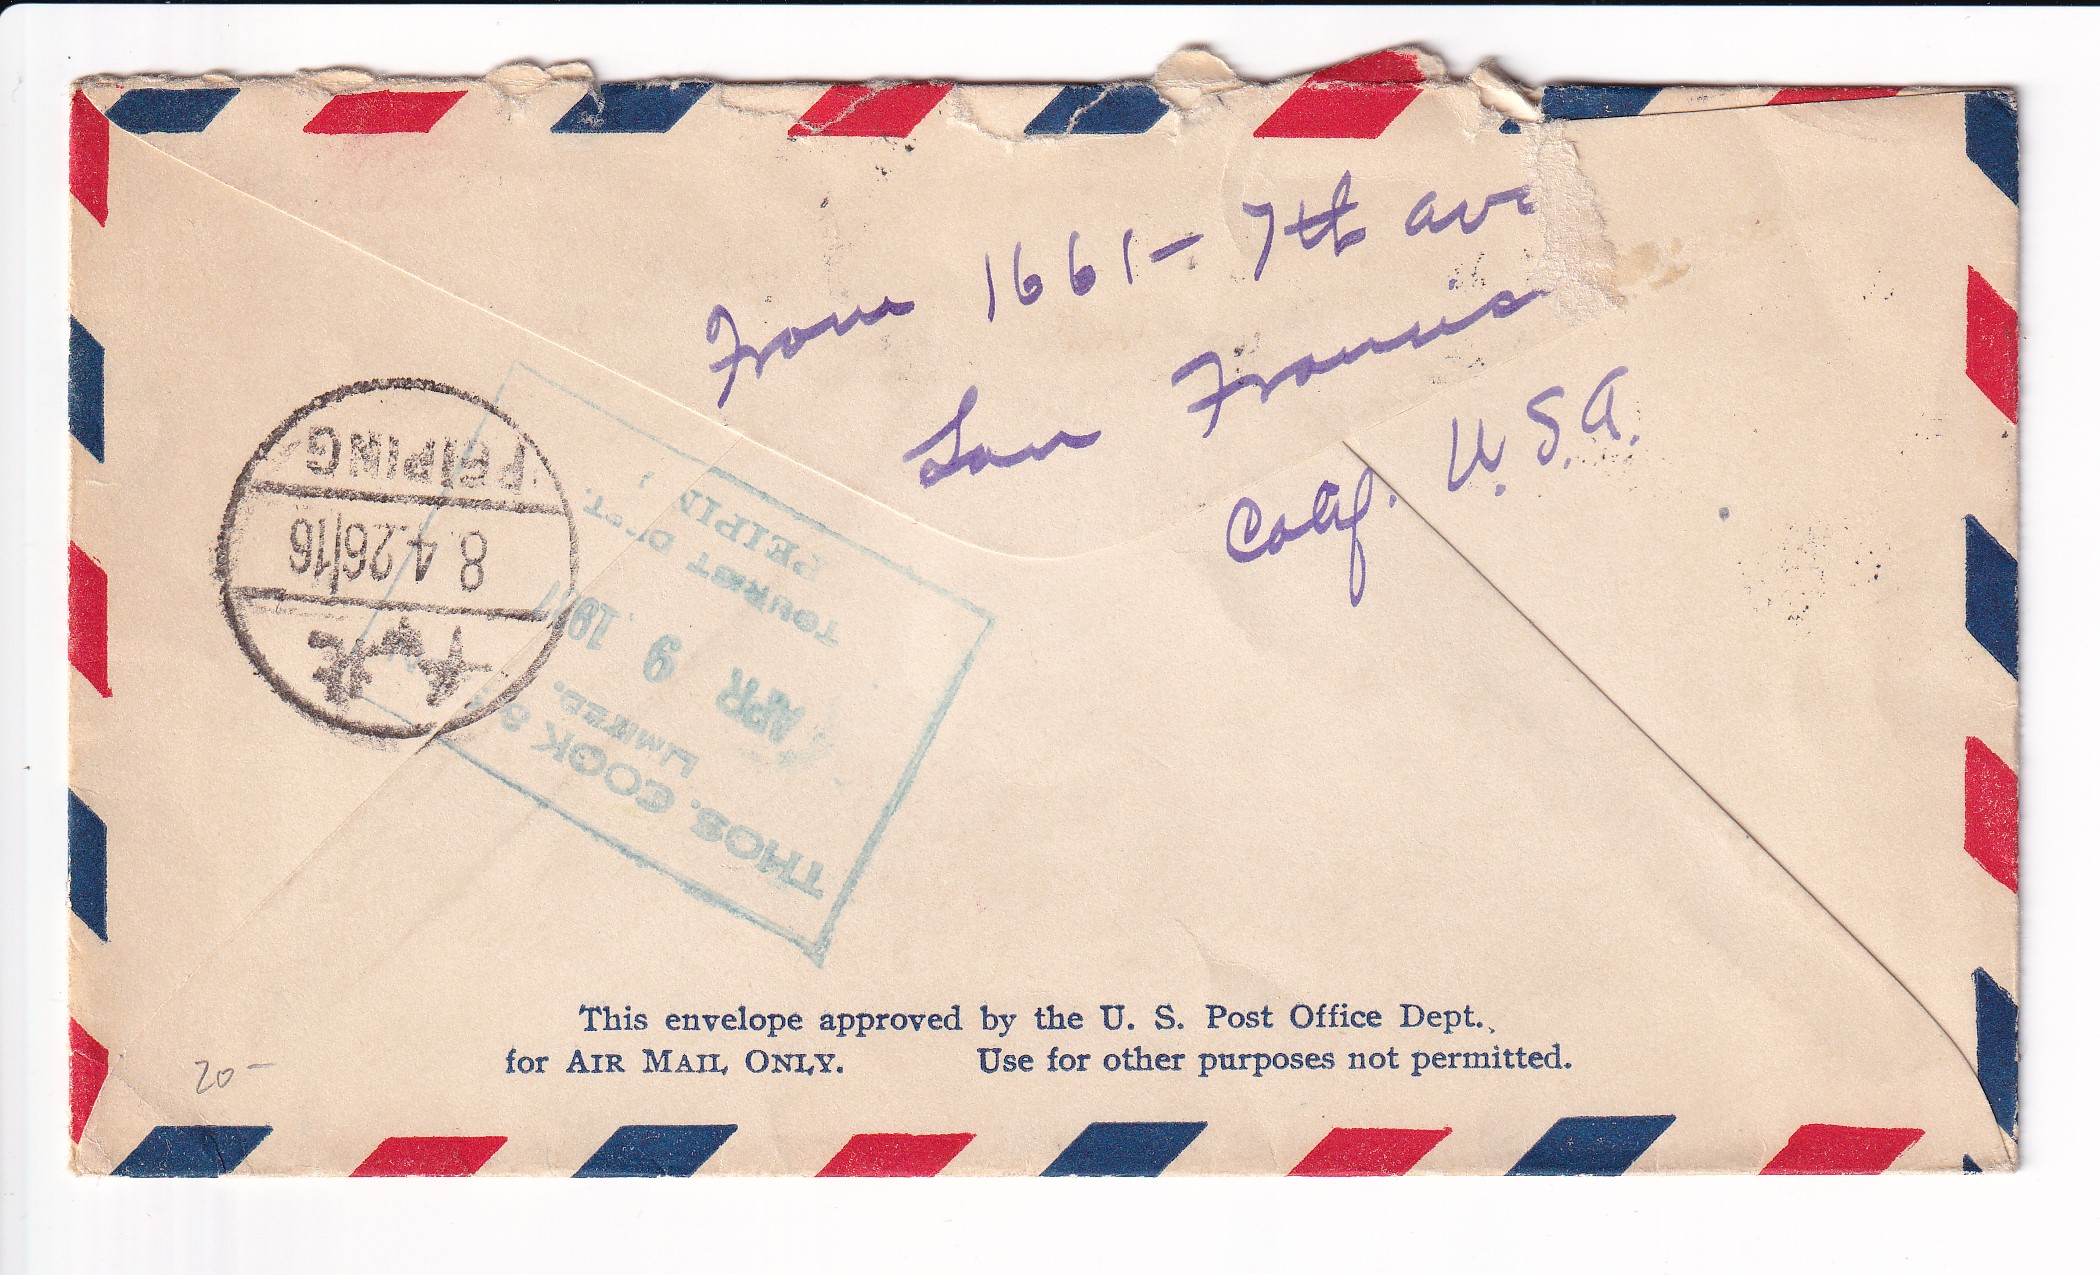 From 1661 - 7th ave
San Francis
Calif. U.S.A.
PEIPING
8.4.26/16
北平
THOS. COOK &
LIMITED.
APR 9 19
TOURIST DEPT.
PEIPIN
This envelope approved by the U. S. Post Office Dept.,
for AIR MAIL ONLY. Use for other purposes not permitted.
20-